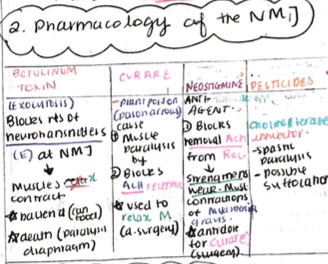 2. Pharmacology of the NMJ
BOTULINUM
TOXIN
(EXOCYTOSIS)
Blocks rls of
neurotransmitters
(E) at NMJ
↓
Muscles
contract
(can food)
death (paralysis
diaphragm)
CURARE
- plant poison
(poisonarrows)
cause
① Muscle
paralysis
by
② Blocks
ACh receptor
☆ used to
relax M
(a. surgery)
NEOSTIGMINE
ANTI
AGENT.
① Blocks
removal ACh
from Rec
↓
Strengthens
weak. Must
contractions
of Myasthenia
gravis.
☆ antidote
for curare
(surgery)
PESTICIDES
cholinesterase
inhibitor
- spastic
paralysis
- possible
suffocation